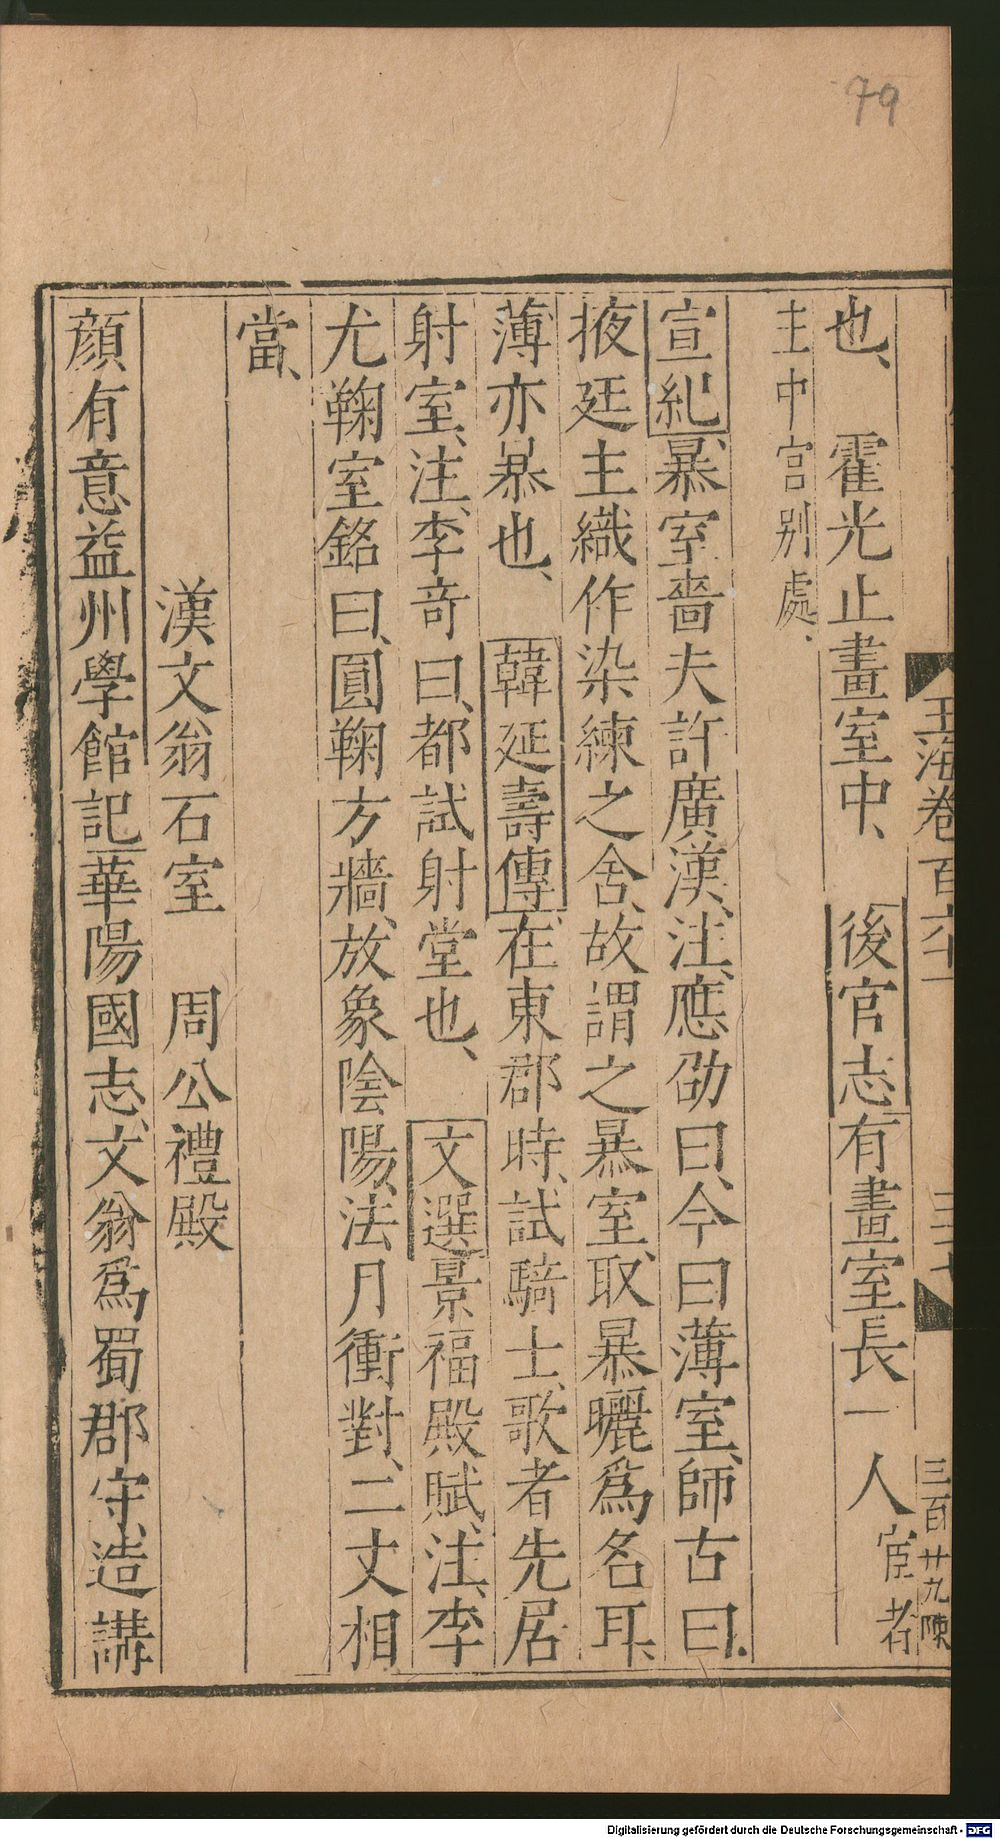 79
玉海卷百六十一
三百廿九陳
也、霍光止畫室中、後官志有畫室長一人宦者
主中宫别處、
宣紀暴室嗇夫許廣漢、注、應劭曰、今曰薄室、師古曰、
掖廷主織作染練之舍、故謂之暴室、取暴曬爲名耳、
薄亦暴也、韓延壽傳、在東郡時、試騎士、歌者先居
射室、注、李奇曰、都試射堂也、文選景福殿賦、注、李
尤鞠室銘曰、圓鞠方牆、放象陰陽、法月衝對、二丈相
當、
漢文翁石室 周公禮殿
顔有意益州學館記華陽國志、文翁爲蜀郡守、造講
Digitalisierung gefördert durch die Deutsche Forschungsgemeinschaft - DFG